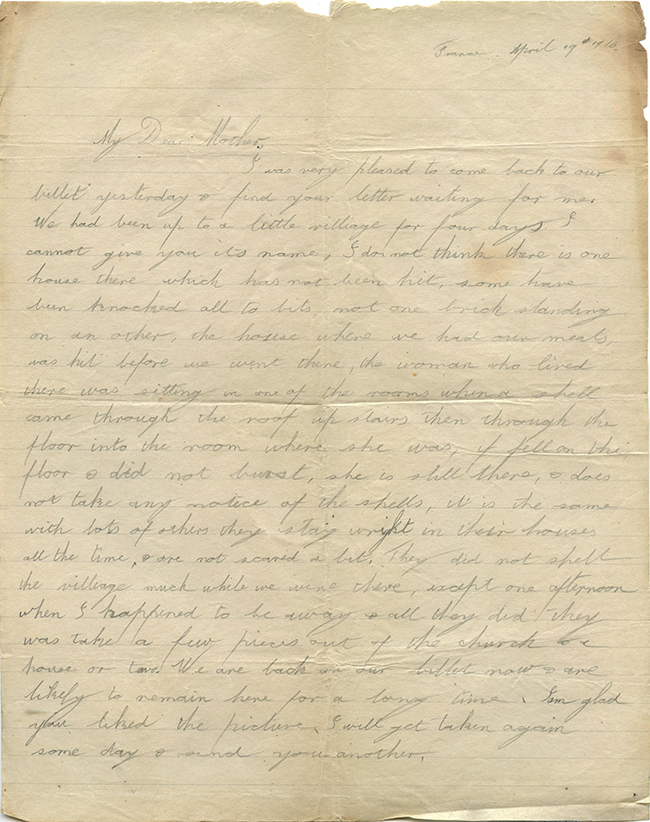 France. April 19th /16
My Dear Mother,
I was very pleased to come back to our
billet yesterday & find your letter waiting for me.
We had been up to a little villiage for four days I
cannot give you it's name, I do not think there is one
house there which has not been hit, some have
been knocked all to bits, not one brick standing
on an other, the house where we had our meals,
was hit before we went there, the woman who lived
there was sitting in one of the rooms when a shell
came through the roof up stairs then through the
floor into the room where she was, it fell on the
floor & did not burst, she is still there, & does
not take any notice of the shells, it is the same
with lots of others they stay wright in their houses
all the time, & are not scared a bit. They did not shell
the villeage much while we were there, except one afternoon
when I happened to be away & all they did they
was take a few pieces out of the church &
house or two. We are back in our billet now & are
likely to remain here for a long time. Im glad
you liked the picture, I will get taken again
some day & send you another.